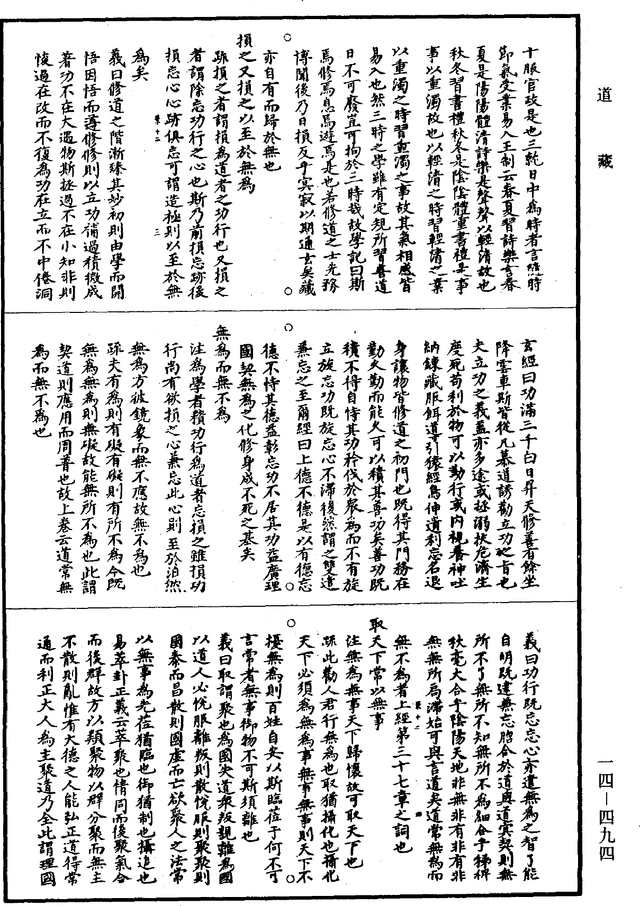 道藏
十服官政是也三就日中為時者言照時
節氣受業易入王制云春夏習詩樂言春
夏是陽陽體清詩樂是聲聲以輕清故也
秋冬習書禮秋冬是陰陰體重書禮是事
事以重濁故也以輕清之時習輕清之業
以重濁之時習重濁之事故其氣相感皆
易入也然三時之學雖有定規所習善道
日不可廢宜可拘於三時哉故學記曰斯
焉修焉息焉遊焉是也若修道之士先務
博聞後乃日損反乎冥寂以期通玄矣藏
亦自有而歸於無也
損之又損之以至於無為
疏損之者謂損為道者之功行也又損之
者謂除忘功行之心也斯乃前損忘跡後
損忘心心跡俱忘可謂造極則以至於無
為矣
義曰修道之階漸臻其妙初則由學而開
悟因悟而遵修修則以立功補過積微成
著功不在大遇物斯拯過不在小知非則
悛過在改而不復為功在立而不中倦洞
玄經曰功滿三千白日昇天修善有餘坐
降雲車斯皆從凡慕道誘勸立功之旨也
夫立功之義蓋亦多途或拯溺扶危濟生
度死苟利於物可以勤行或內視養神吐
納鍊藏服餌道引猿經鳥伸遺利忘名退
身讓物皆修道之初門也既得其門務在
勤久勤而能久可以積其善功矣善功既
積不得自恃其功矜伐於眾為而不有旋
立旋忘功既旋忘心不滯後然謂之雙遣
兼忘之至爾經曰上德不德是以有德忘
德不恃其德益彰忘功不居其功益廣理
國契無為之化修身成不死之基矣
無為而無不為
注為學者積功行為道者忘損之雖損功
行尚有欲損之心兼忘此心則至於泊然
無為方彼鏡象而無不應故無不為也
疏夫有為則有礙有礙則有所不為今既
無為無為則無礙故能無所不為也此謂
契道則應用而周普也故上卷云道常無
為而無不為也
義曰功行既忘忘心亦遣無為之智了能
自明既達兼忘脗合於道與道冥契則無
所不了無所不知無所不為細合乎稊稗
秋毫大合乎陰陽天地非無非有非有非
無無所局滯始可與言道矣道常無為而
無不為者上經第三十七章之詞也
取天下常以無事
注無為無事天下歸懷故可取天下也
疏此勸人君行無為也取猶攝化也攝化
天下必須為無為事無事無事則天下不
擾無為則百姓自安以斯臨莅于何不可
言常者無事御物不可斯須離也
義曰取謂聚也為國失道眾叛親離為國
以道人必悅服離叛則散悅服則聚聚則
國泰而昌散則國虛而亡欲聚人之法常
以無事為先莅猶臨也御猶制也攝追也
易萃卦正義云萃聚也情同而後聚氣合
而後群故方以類聚物以群分聚而無主
不散則亂惟有大德之人能弘正道得常
通而利正大人為主聚道乃全此謂理國
一四—四九四